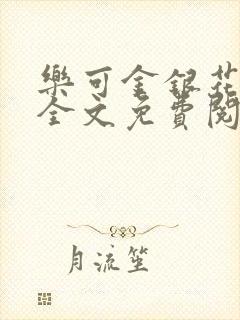 樂可金銀花
全文免費閱
月流笙